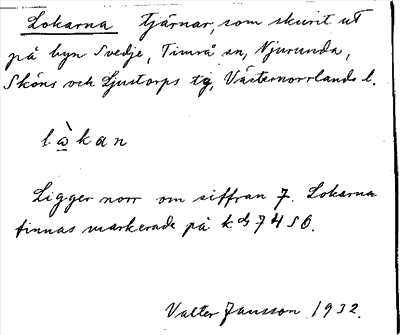 Lokarna Tjärnar, som skurit ut
på byn Svedje, Timrå sn, Njurunda,
Sköns och Ljustorps tg, Västernorrlands l.
lò̱kan
Ligger norr om siffran 7. Lokarna
finnas markerade på kbl 74 SO.
Valter Jansson 1932.